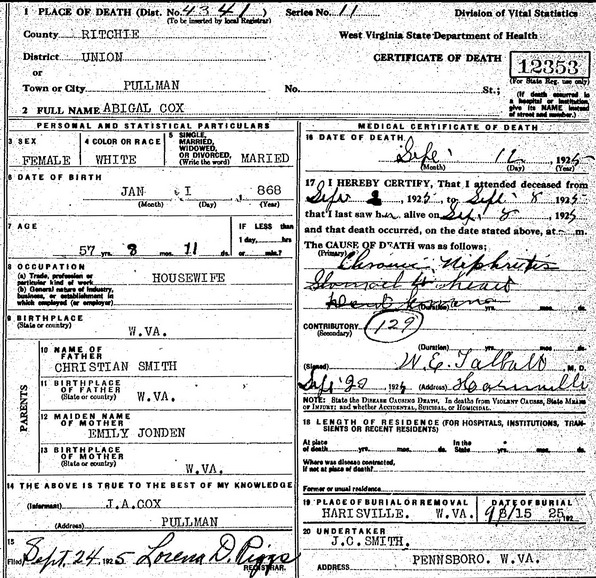 1 PLACE OF DEATH (Dist. No. 4341 Series No. 11 Division of Vital Statistics
(To be inserted by local Registrar)
County RITCHIE West Virginia State Department of Health
District UNION CERTIFICATE OF DEATH 12353
or (For State Reg. use only)
Town or City PULLMAN No. St.;
(If death occurred in a hospital or institution, give its NAME instead of street and number.)
2 FULL NAME ABIGAL COX
PERSONAL AND STATISTICAL PARTICULARS
3 SEX
FEMALE
4 COLOR OR RACE
WHITE
5 SINGLE, MARRIED, WIDOWED, OR DIVORCED, (Write the word)
MARIED
6 DATE OF BIRTH
JAN I 868
(Month) (Day) (Year)
7 AGE
57 yrs. 8 mos. 11 ds.
IF LESS than 1 day, hrs or min.?
8 OCCUPATION
(a) Trade, profession or particular kind of work
HOUSEWIFE
(b) General nature of industry, business, or establishment in which employed (or employer)
9 BIRTHPLACE
(State or country)
W.VA.
PARENTS
10 NAME OF FATHER
CHRISTIAN SMITH
11 BIRTHPLACE OF FATHER
(State or country)
W.VA.
12 MAIDEN NAME OF MOTHER
EMILY JONDEN
13 BIRTHPLACE OF MOTHER
(State or country)
W.VA.
14 THE ABOVE IS TRUE TO THE BEST OF MY KNOWLEDGE
(Informant) J.A.COX
(Address) PULLMAN
15
Filed Sept. 24, 1925 Lorena D. Riggs
REGISTRAR.
MEDICAL CERTIFICATE OF DEATH
16 DATE OF DEATH
Sept 12, 1925
(Month) (Day) (Year)
17 I HEREBY CERTIFY, That I attended deceased from
Sept 1925, to Sept 8 1925
that I last saw her alive on Sept 8 1925
and that death occurred, on the date stated above, at m.
The CAUSE OF DEATH was as follows;
(Primary)
Chronic Nephritis
heart
(Duration) yrs. mos. ds.
CONTRIBUTORY 129
(Secondary)
(Duration) yrs. mos. ds.
(Signed) W.E. Talbott, M.D.
Sept 20 1925 (Address) Harrisville
NOTE: State the DISEASE CAUSING DEATH, In deaths from VIOLENT CAUSES, State MEANS OF INJURY; and whether ACCIDENTAL, SUICIDAL or HOMICIDAL.
18 LENGTH OF RESIDENCE (FOR HOSPITALS, INSTITUTIONS, TRANSIENTS OR RECENT RESIDENTS)
At place In the
of death yrs. mos. ds. State yrs. mos. ds.
Where was disease contracted,
if not at place of death?
Former or usual residence
19 PLACE OF BURIAL OR REMOVAL DATE OF BURIAL
HARISVILLE. W.VA. 9/15 25, 192
20 UNDERTAKER
J.C.SMITH.
PENNSBORO. W.VA.